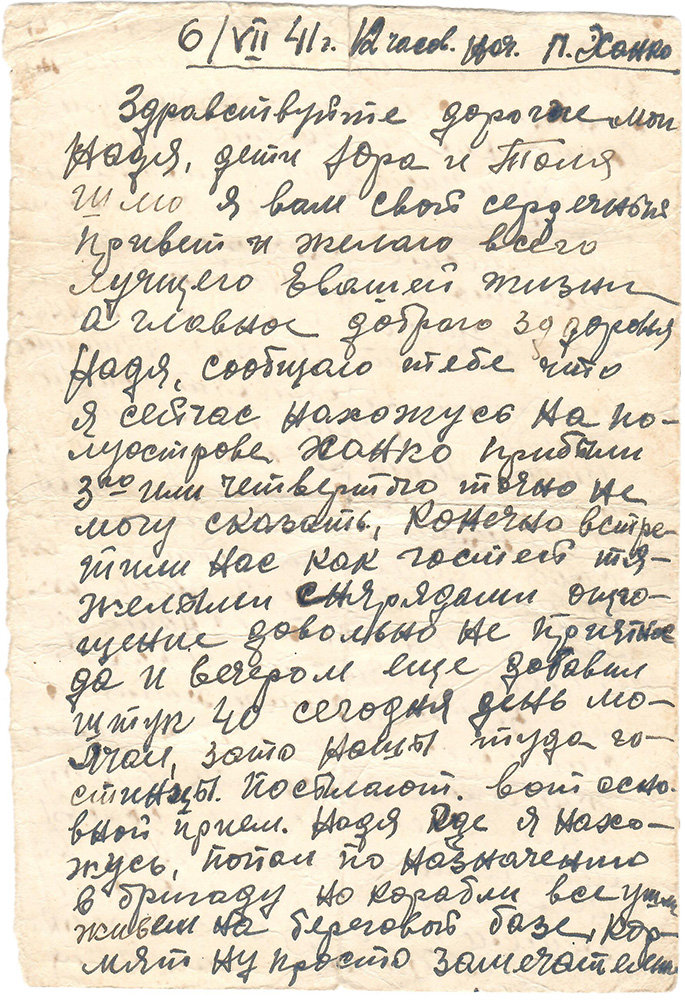 6/VII 41г. 12 часов. ноч. П. Ханко
Здравствуйте дорогие мои
Надя, дети Юра и Толя
Шлю я вам свой сердечный
привет и желаю всего
лучшего в вашей жизни
а главное доброго здоровья
Надя, сообщаю тебе что
я сейчас нахожусь на по-
луострове Ханко прибыли
3го или четвертого точно не
могу сказать, конечно встре-
тили нас как гостей тя-
желыми снарядами ощю-
щение довольно не приятное
да и вечером еще добавил
штук 40 сегодня день мо-
лчал, зато нашы туда го-
стинцы посылают. вот основ-
вной прием. Надя где я нахо-
жусь, попал по назначению
в бригаду но корабли все ушли
живем на береговой базе, кор-
мят ну просто замечательно